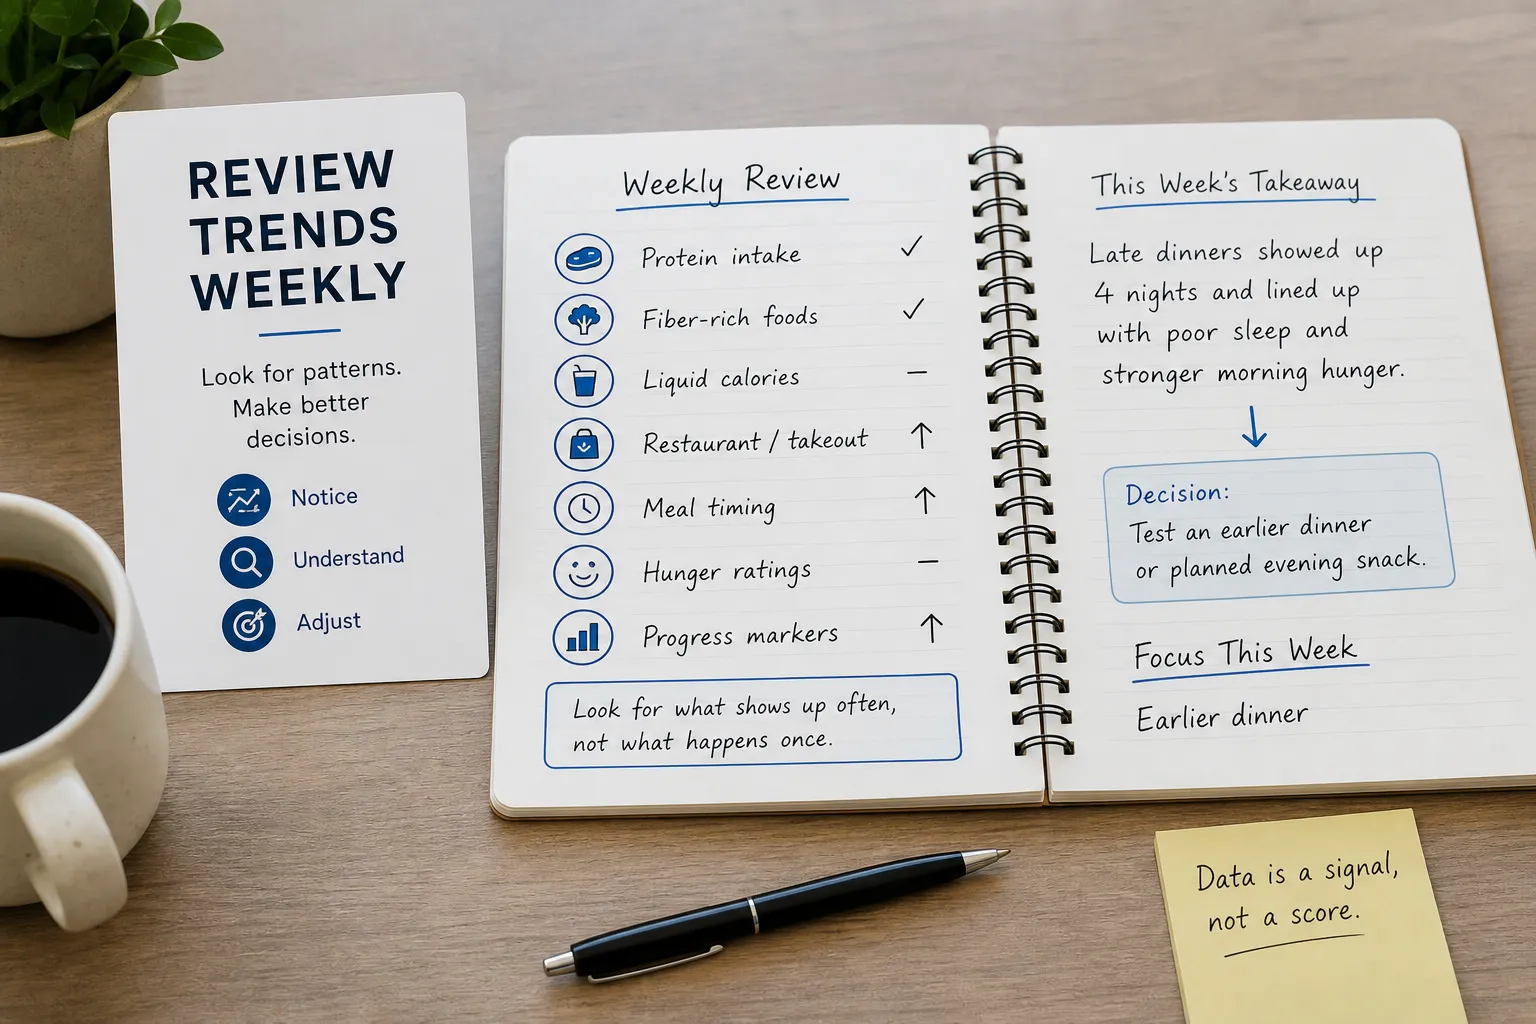 REVIEW
TRENDS
WEEKLY
Look for patterns.
Make better
decisions.
Notice
Understand
Adjust
Weekly Review
Protein intake ✓
Fiber-rich foods ✓
Liquid calories –
Restaurant / takeout ↑
Meal timing ↑
Hunger ratings –
Progress markers ↑
Look for what shows up often,
not what happens once.
This Week's Takeaway
Late dinners showed up
4 nights and lined up
with poor sleep and
stronger morning hunger.
↓
Decision:
Test an earlier dinner
or planned evening snack.
Focus This Week
Earlier dinner
Data is a signal,
not a score.